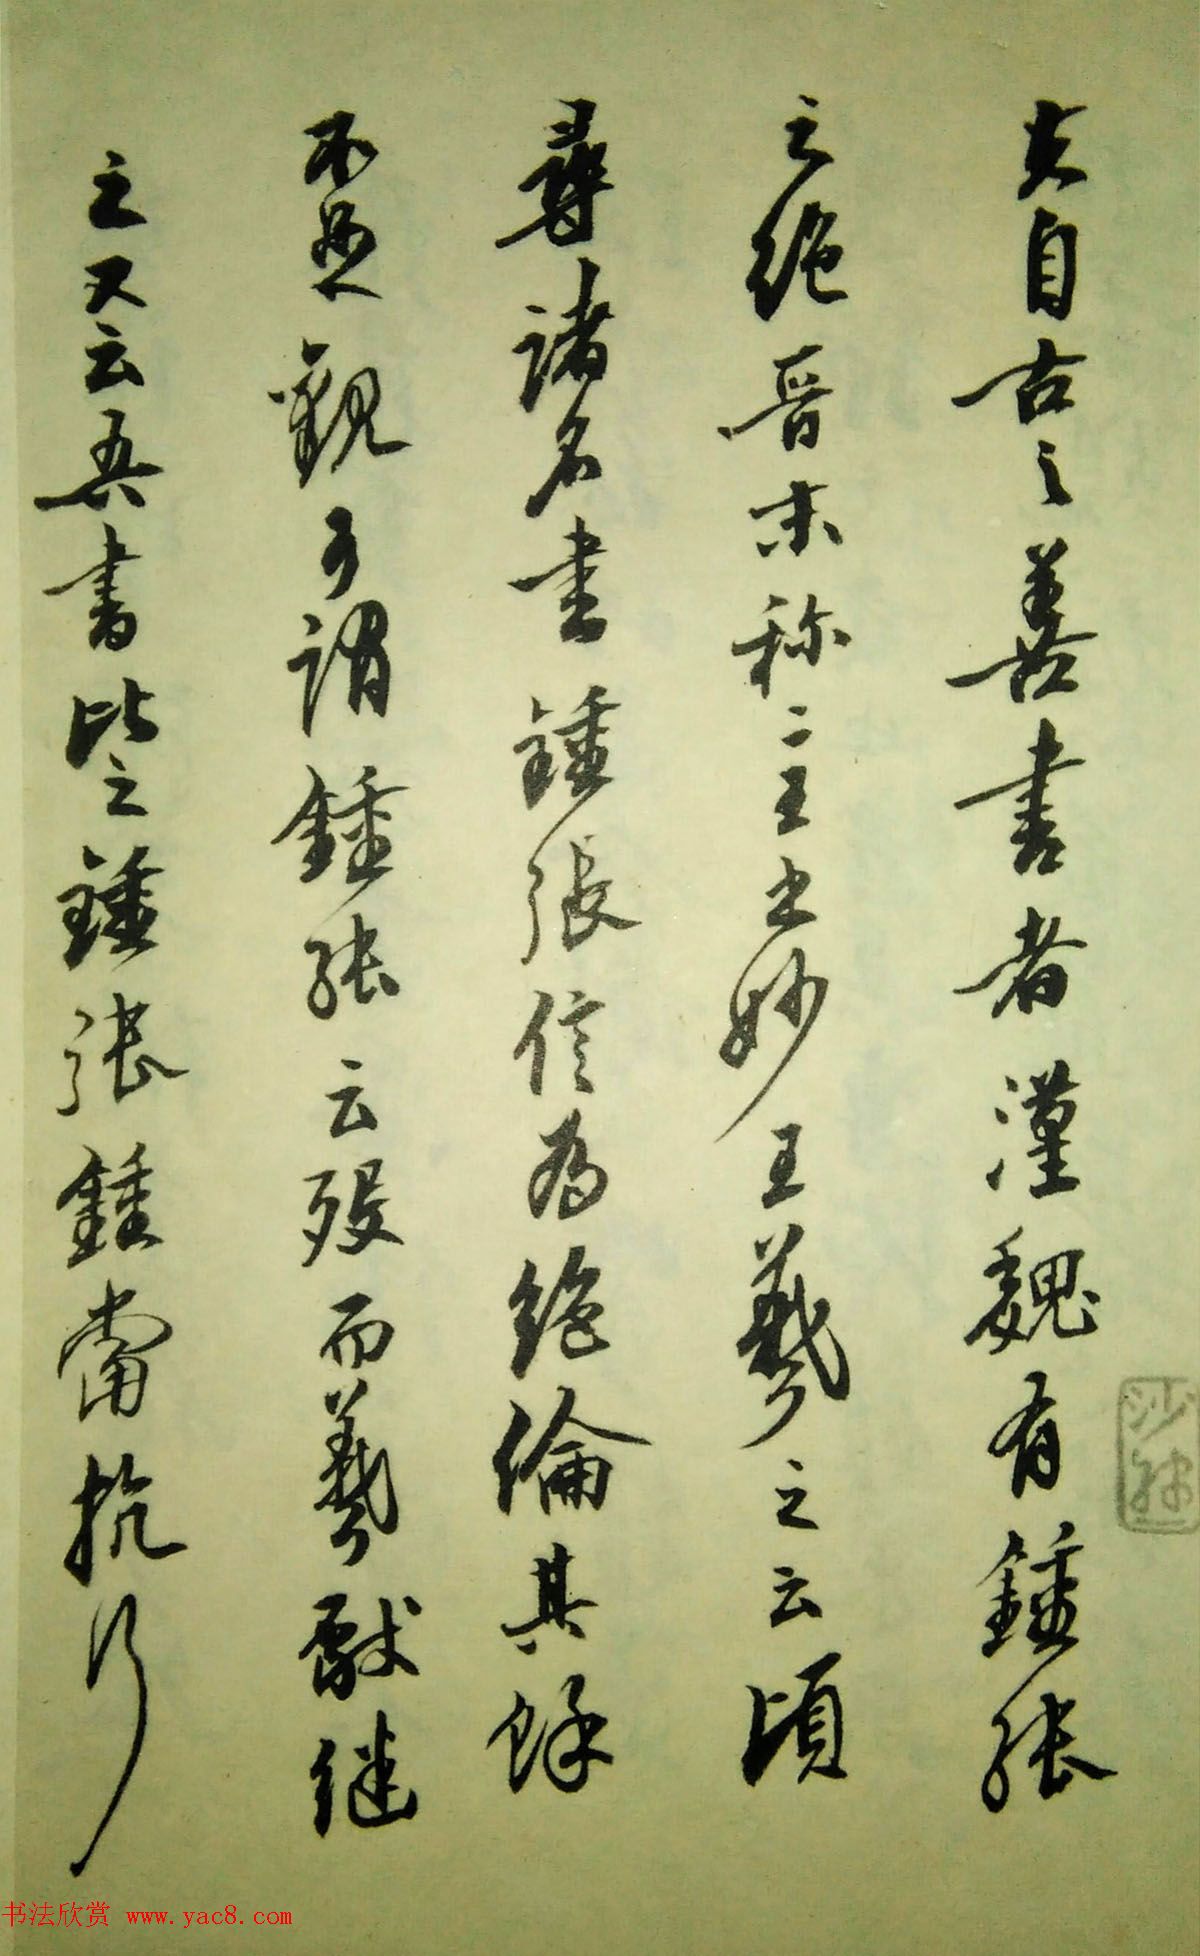 夫自古之善書者漢魏有鍾張
之絕晉末稱二王之妙王羲之云頃
尋諸名書鍾張信為絕倫其餘
不足觀可謂鍾張云歿而羲獻继
之又云吾書比之鍾張鍾當抗行
书法欣赏 www.yac8.com